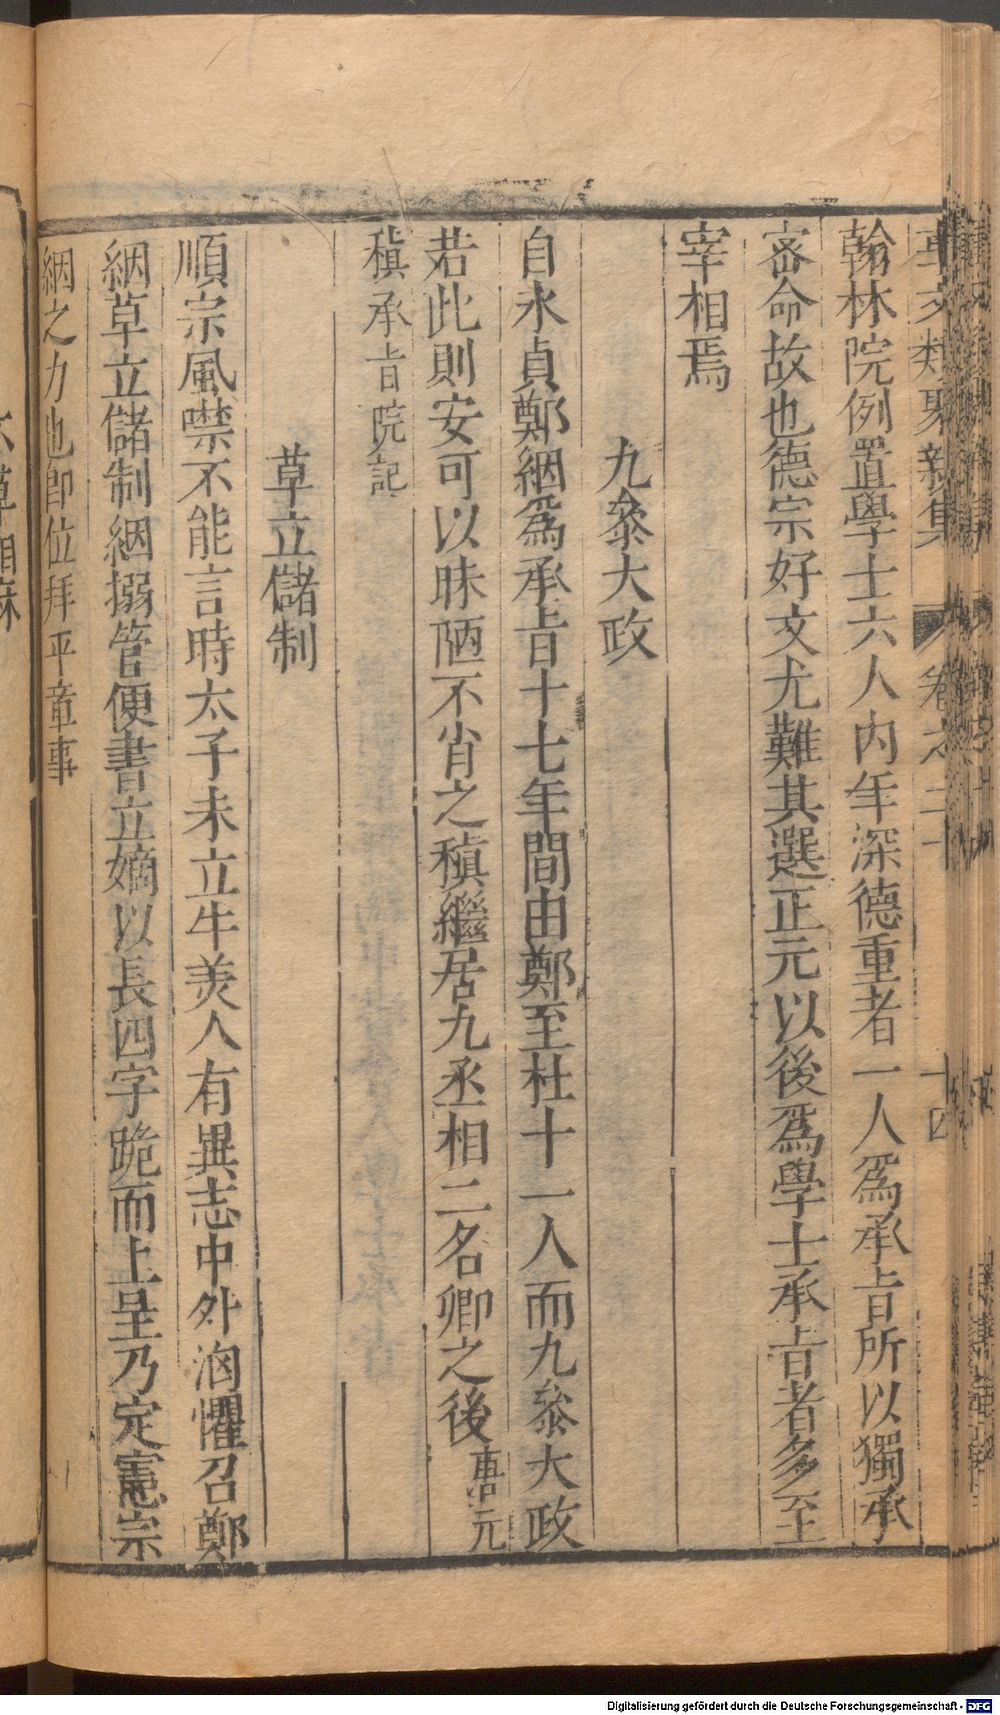 事文類聚新集
卷之二十
十四
翰林院例置學士六人内年深德重者一人爲承㫖所以獨承
宻命故也德宗好文尤難其選正元以後爲學士承㫖者多至
宰相焉
九叅大政
自永貞鄭絪爲承㫖十七年間由鄭至杜十一人而九叅大政
若此則安可以昧陋不肖之稹繼居九丞相二名卿之後唐元
稹承㫖院記
草立儲制
順宗風噤不能言時太子未立牛美人有異志中外洶懼召鄭
絪草立儲制絪搦管便書立嫡以長四字跪而上呈乃定憲宗
絪之力也即位拜平章事
草相麻
Digitalisierung gefördert durch die Deutsche Forschungsgemeinschaft - DFG